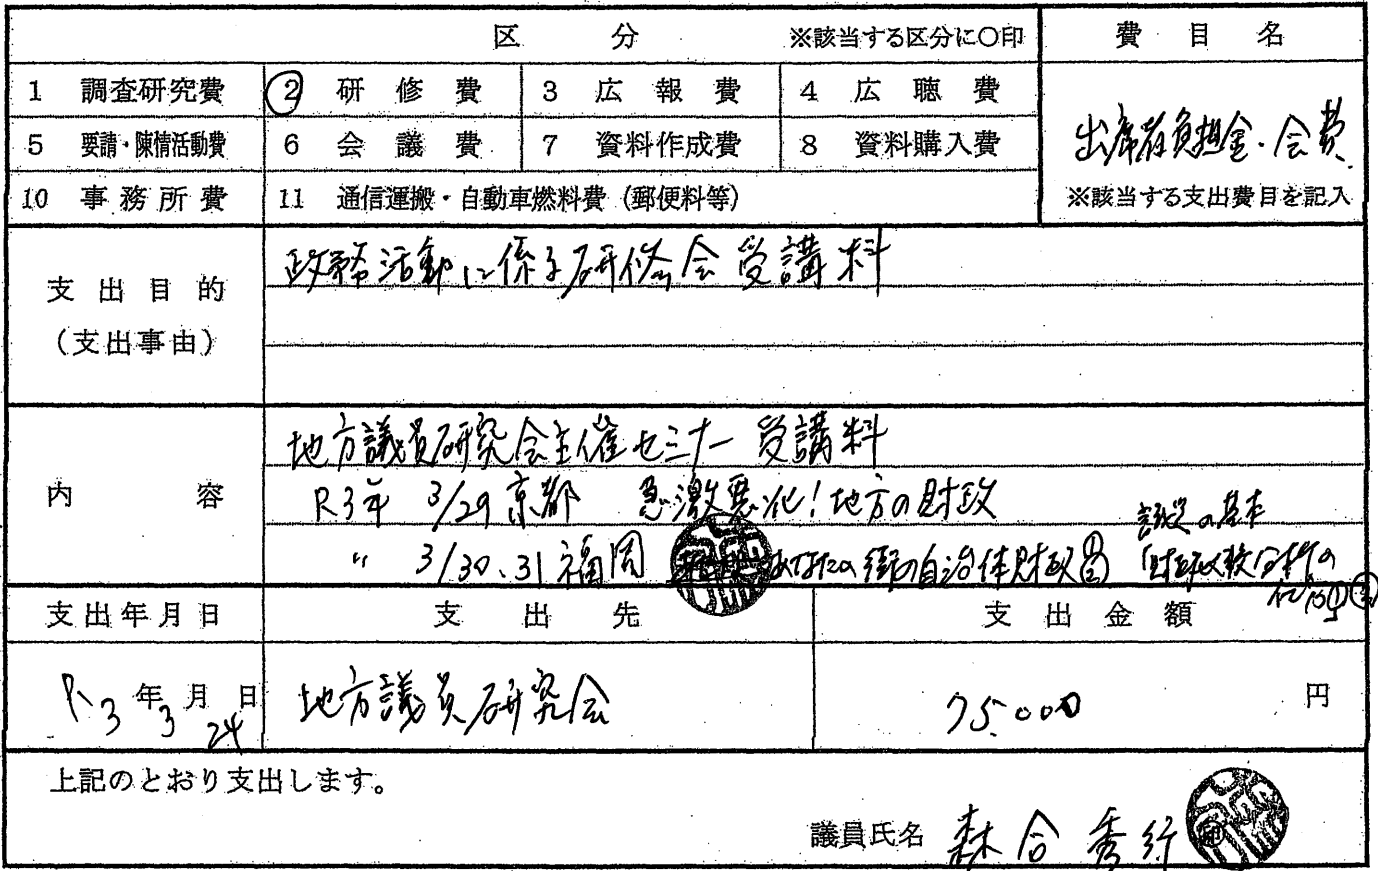 区 分 ※該当する区分に○印 費目名
1 調査研究費 ② 研修費 3 広報費 4 広聴費
出席者負担金・会費
5 要請・陳情活動費 6 会議費 7 資料作成費 8 資料購入費
10 事務所費 11 通信運搬・自動車燃料費（郵便料等） ※該当する支出費目を記入
支出目的
（支出事由）
政務活動に係る研修会受講料
内容
地方議員研究会主催セミナー受講料
R3年 3/29 京都 急激悪化！地方の財政
〃 3/30.31 福岡 あなたの街の自治体財政 の基本
支出年月日 支出先 支出金額
R3年3月24日 地方議員研究会 75.000円
上記のとおり支出します。
議員氏名 森合秀行